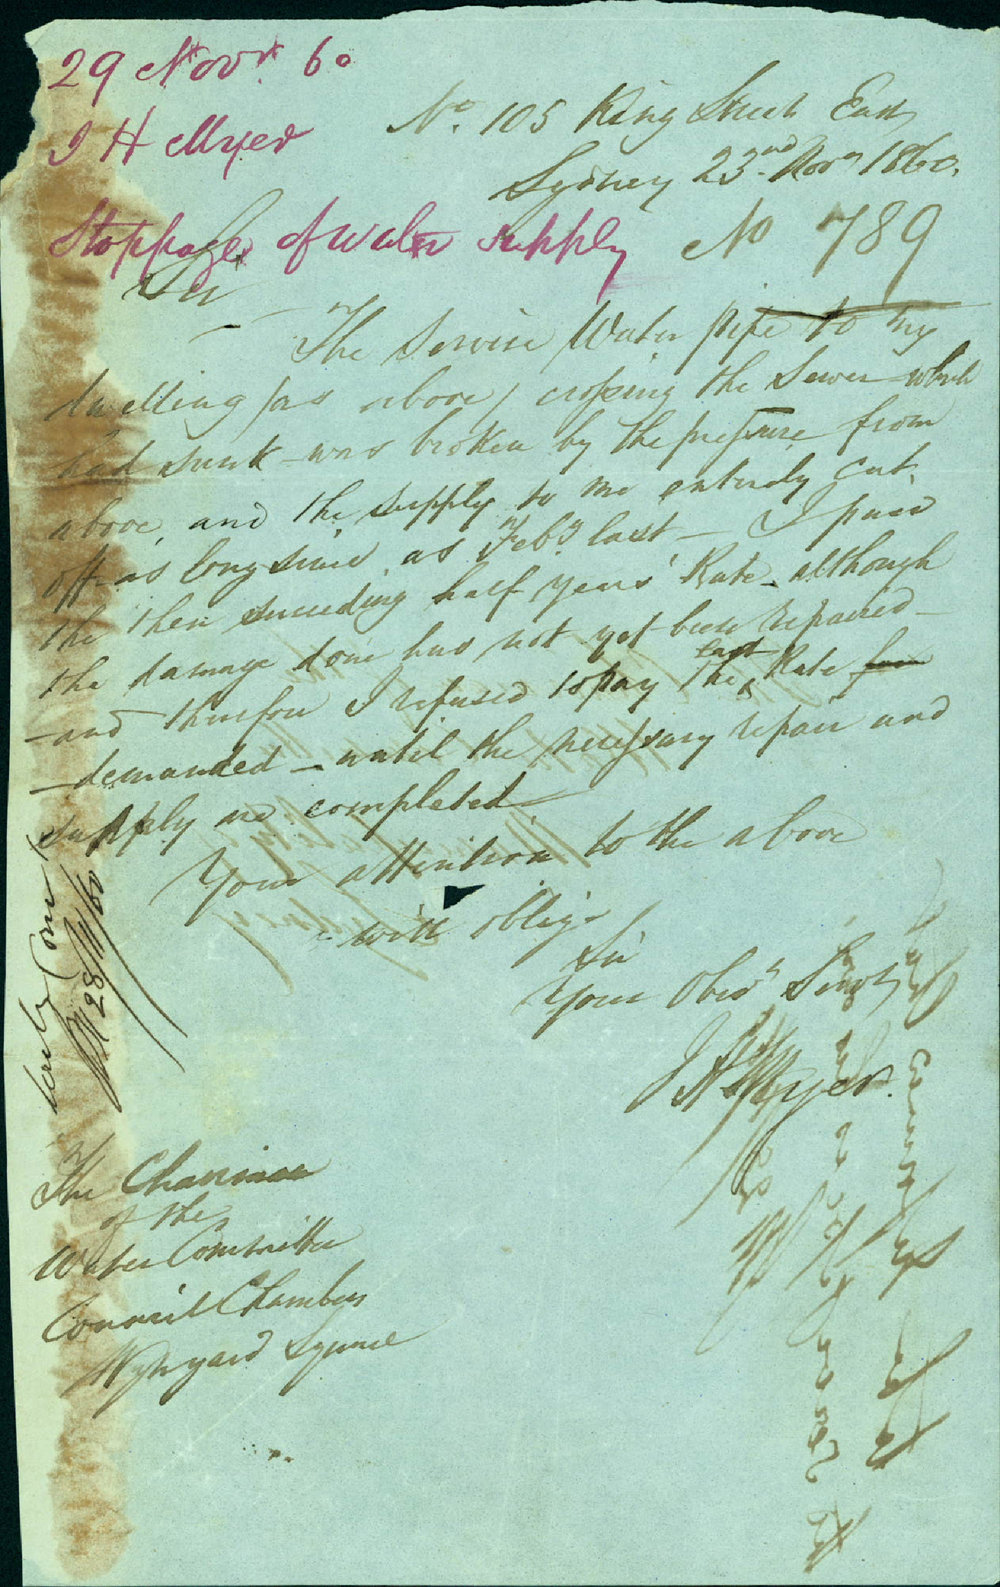 29 Novr. 60
J H Myer
No. 105 King Street East
Sydney 23rd Novr 1860.
Stoppage of water supply
No 789
Sir
The Service Water pipe to my
dwelling (as above) crossing the Sewer which
had sunk - was broken by the pressure from
above, and the supply to me entirely cut
off as long since as Feby last - I paid
the then succeeding half years' Rate - although
the damage done has not yet been repaired -
- and therefore I refused to pay the last Rate
- demanded - until the necessary repair and
supply are completed
Your attention to the above
will oblige
Sir
Your Obdt Servt
J H Myer.
Water Com
28/11/60
The Chairman
of the
Water Committee
Council Chambers
Wynyard Square